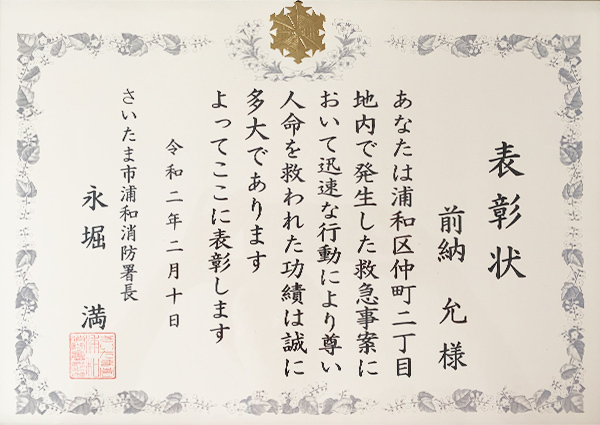 表彰状
前納 允 様
あなたは浦和区仲町二丁目
地内で発生した救急事案に
おいて迅速な行動により尊い
人命を救われた功績は誠に
多大であります
よってここに表彰します
令和二年二月十日
さいたま市浦和消防署長
永堀 満